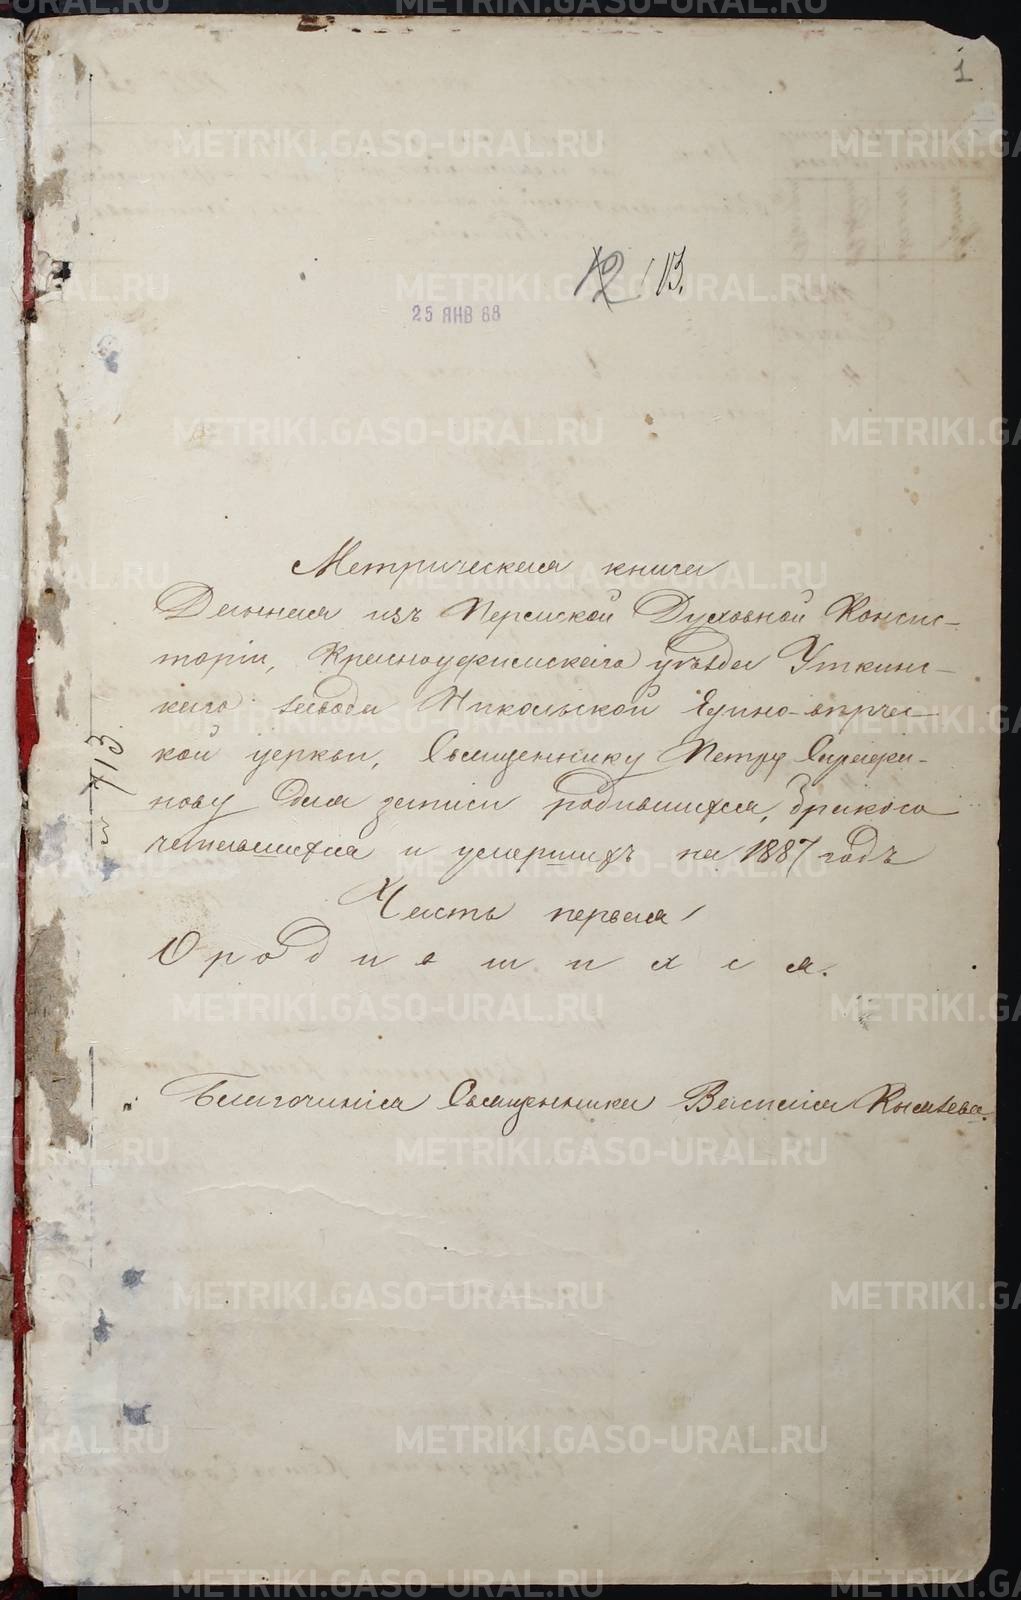 1
12 / 13.
25 ЯНВ 88
Метрическая книга
Данная изъ Пермской Духовной Консис-
торіи, Красноуфимскаго уѣзда Уткинс-
каго завода Никольской Едино-вѣрчес-
кой церкви, Священнику Петру Сарафа-
нову для записи родившихся, бракосо
четавшихся и умершихъ на 1887 годъ
Часть первая
О родившихся.
Благочинія Священника Василія
713
METRIKI.GASO-URAL.RU